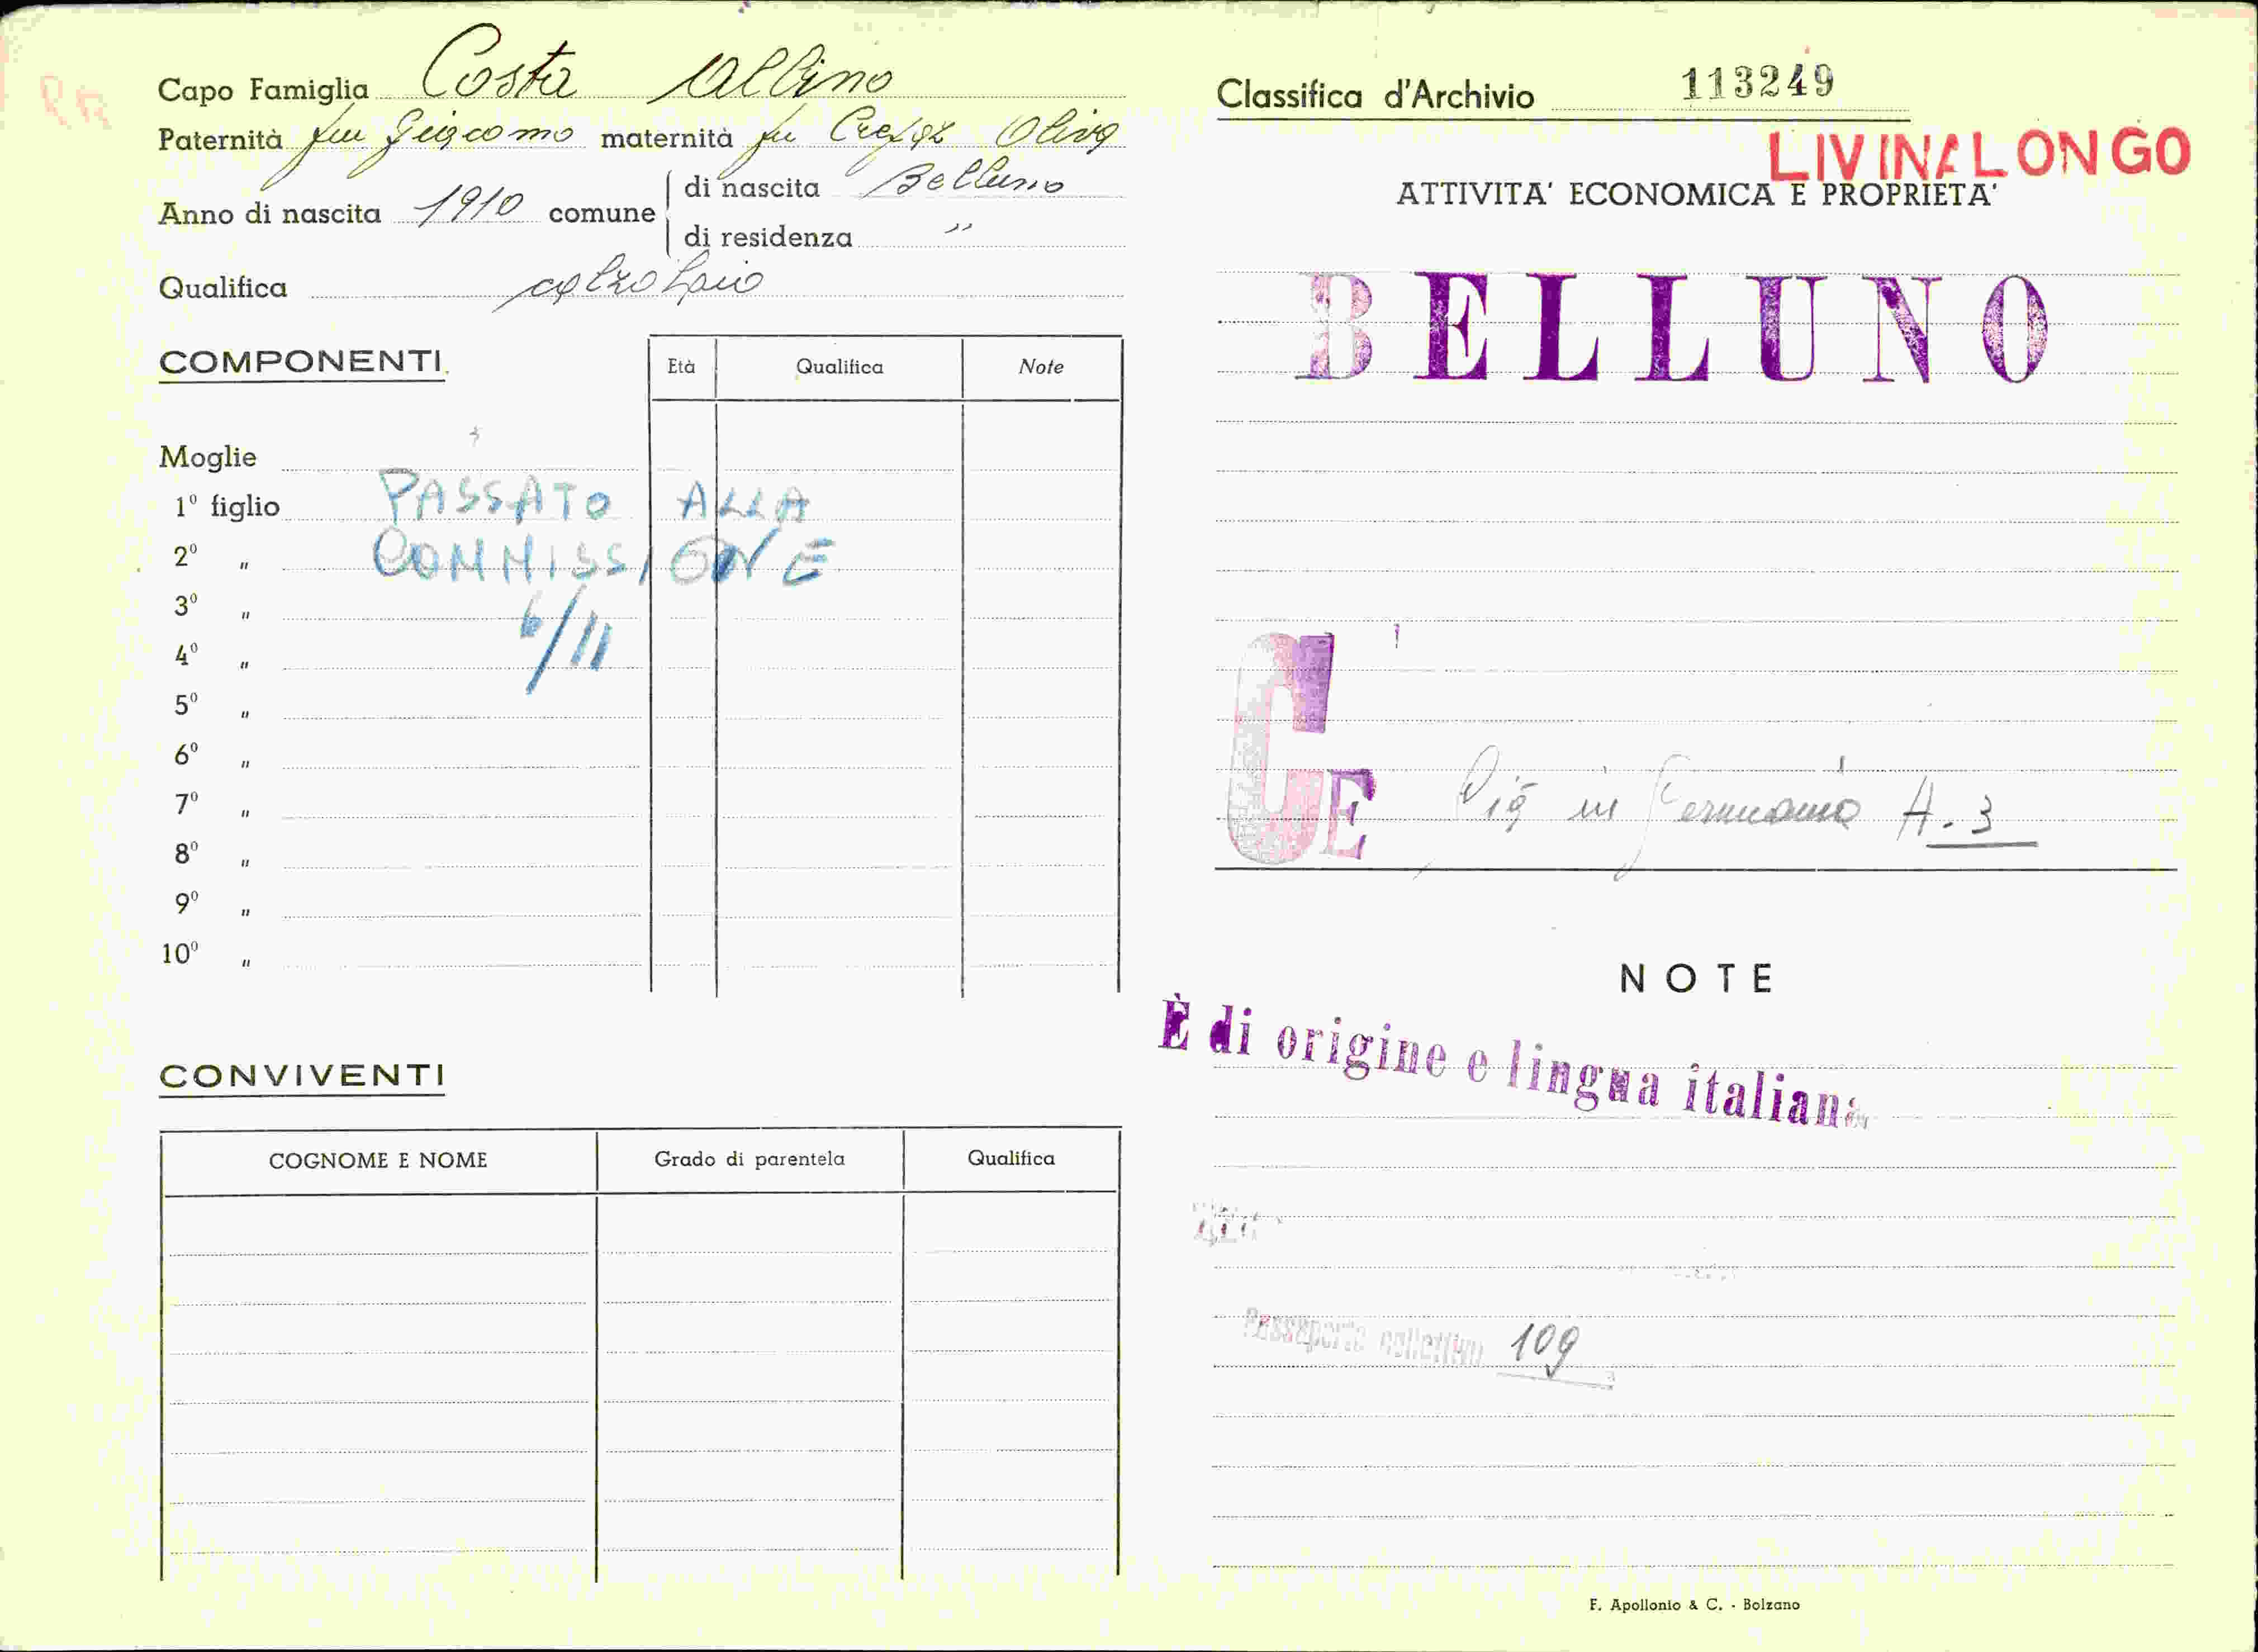 Capo Famiglia Costa Albino
Paternità fu Giacomo maternità fu Oliva
Anno di nascita 1910 comune
di nascita Belluno
di residenza "
Qualifica calzolaio
COMPONENTI
Età Qualifica Note
Moglie
1º figlio
2º "
3º "
4º "
5º "
6º "
7º "
8º "
9º "
10º "
PASSATO ALLA
COMMISSIONE
6/11
CONVIVENTI
COGNOME E NOME Grado di parentela Qualifica
Classifica d'Archivio 113249
LIVINALONGO
ATTIVITA' ECONOMICA E PROPRIETA'
BELLUNO
CE
Già in Germania A.3
NOTE
È di origine e lingua italiana
Passaporto collettivo 109
F. Apollonio & C. - Bolzano